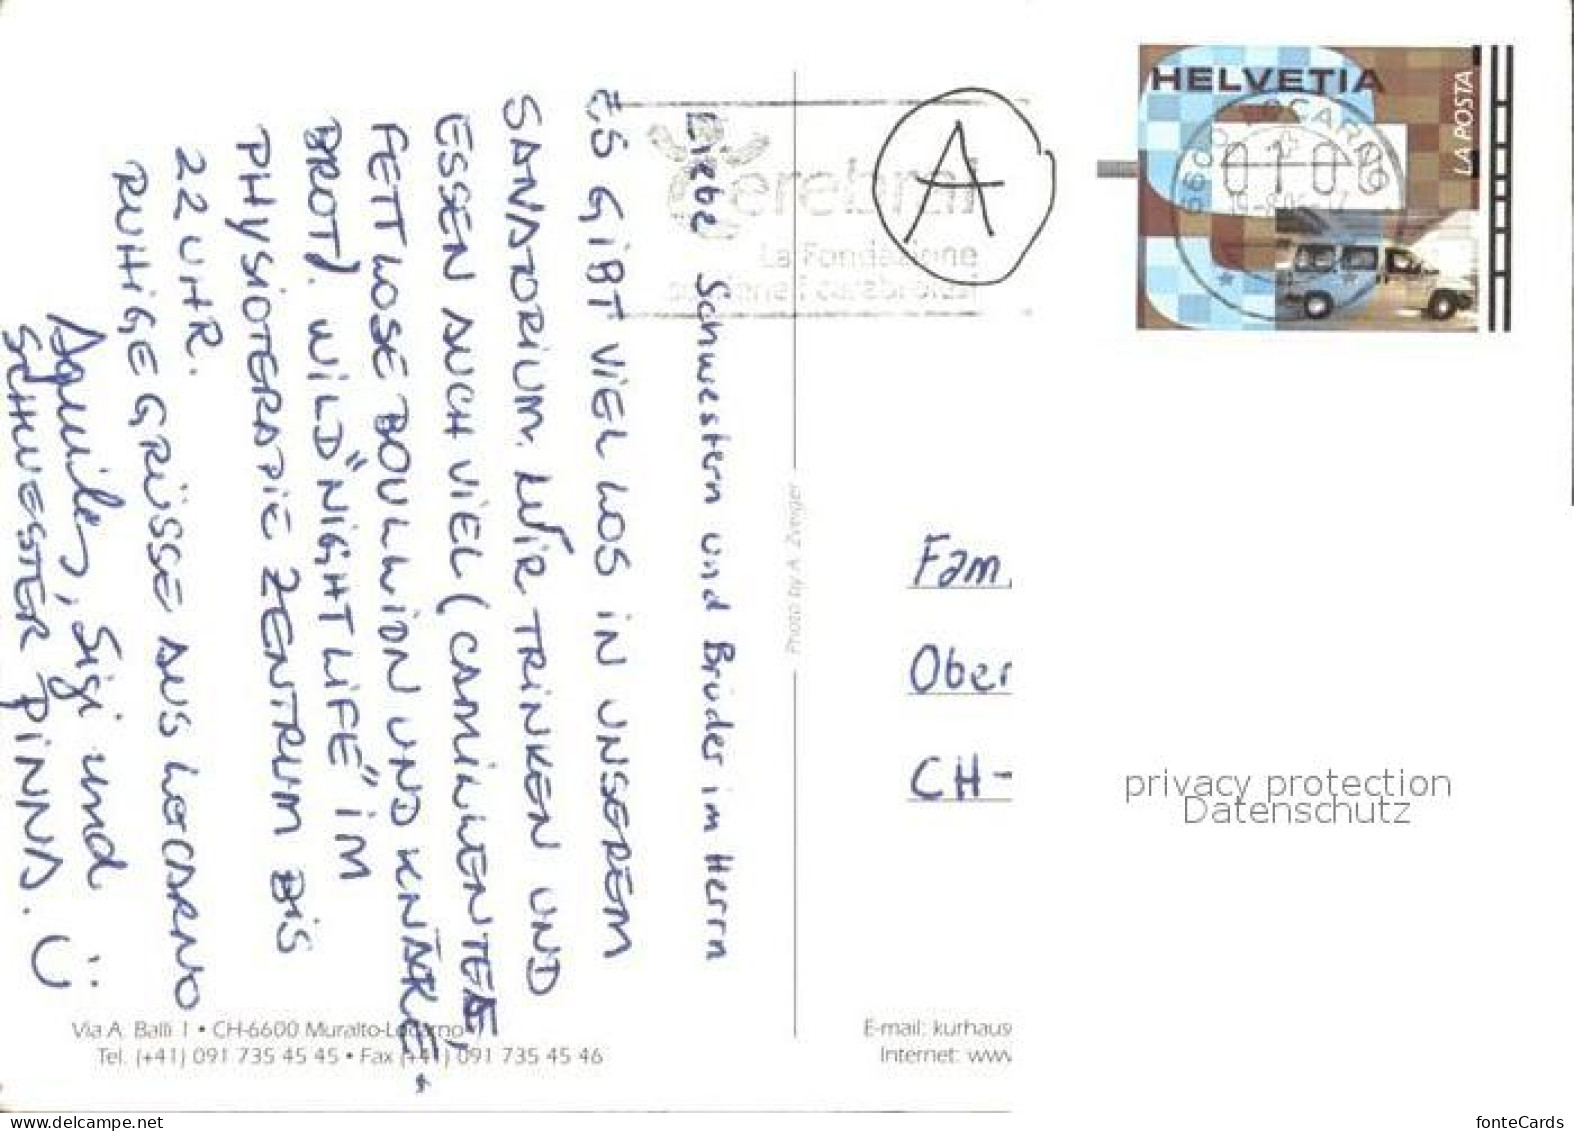 Liebe Schwestern und Brüder im Herrn
ES GiBT ViEL LOS iN UNSEREM
SANATORIUM. WiR TRiNKEN UND
ESSEN AUCH ViEL (CAMiLLENTEE,
FETTLOSE BOULLiON UND KNÄKE-
BROT). WiLD "NiGHTLiFE" iM
PHYSIOTERAPiE ZENTRUM BiS
22 UHR.
RUHiGE GRÜSSE AUS LOCARNO
Sigi und
SCHWESTER PiNNA.
Photo by A. Zveiger
Via A. Balli 1 • CH-6600 Muralto-Locarno
Tel. (+41) 091 735 45 45 • Fax (+41) 091 735 45 46
cerebral
La Fondazione
A
HELVETIA
LA POSTA
6600 LOCARNO
Fam.
Ober
CH-
E-mail: kurhaus
Internet: www
privacy protection
Datenschutz
www.delcampe.net
fonteCards